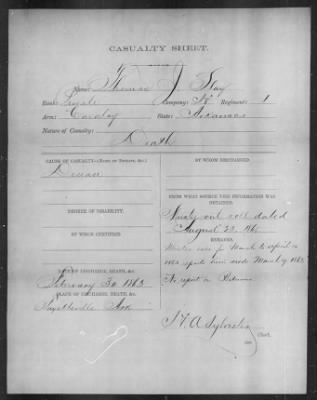 CASUALTY SHEET.
Name: Thomas J Slay
Rank: Private Company: Regiment: 1
Arm: Cavalry State: Arkansas
Nature of Casualty:
Death
CAUSE OF CASUALTY—(NAME OF DISEASE, &c.)
Disease
DEGREE OF DISABILITY.
BY WHOM CERTIFIED.
DATE OF DISCHARGE, DEATH, &c.
February 1863
PLACE OF DISCHARGE, DEATH, &c.
Fayetteville Ark
BY WHOM DISCHARGED.
FROM WHAT SOURCE THIS INFORMATION WAS OBTAINED.
out roll dated
August 23, 186
REMARKS.
roll for March to April
report him died March 9 1863
No report in
Clerk.